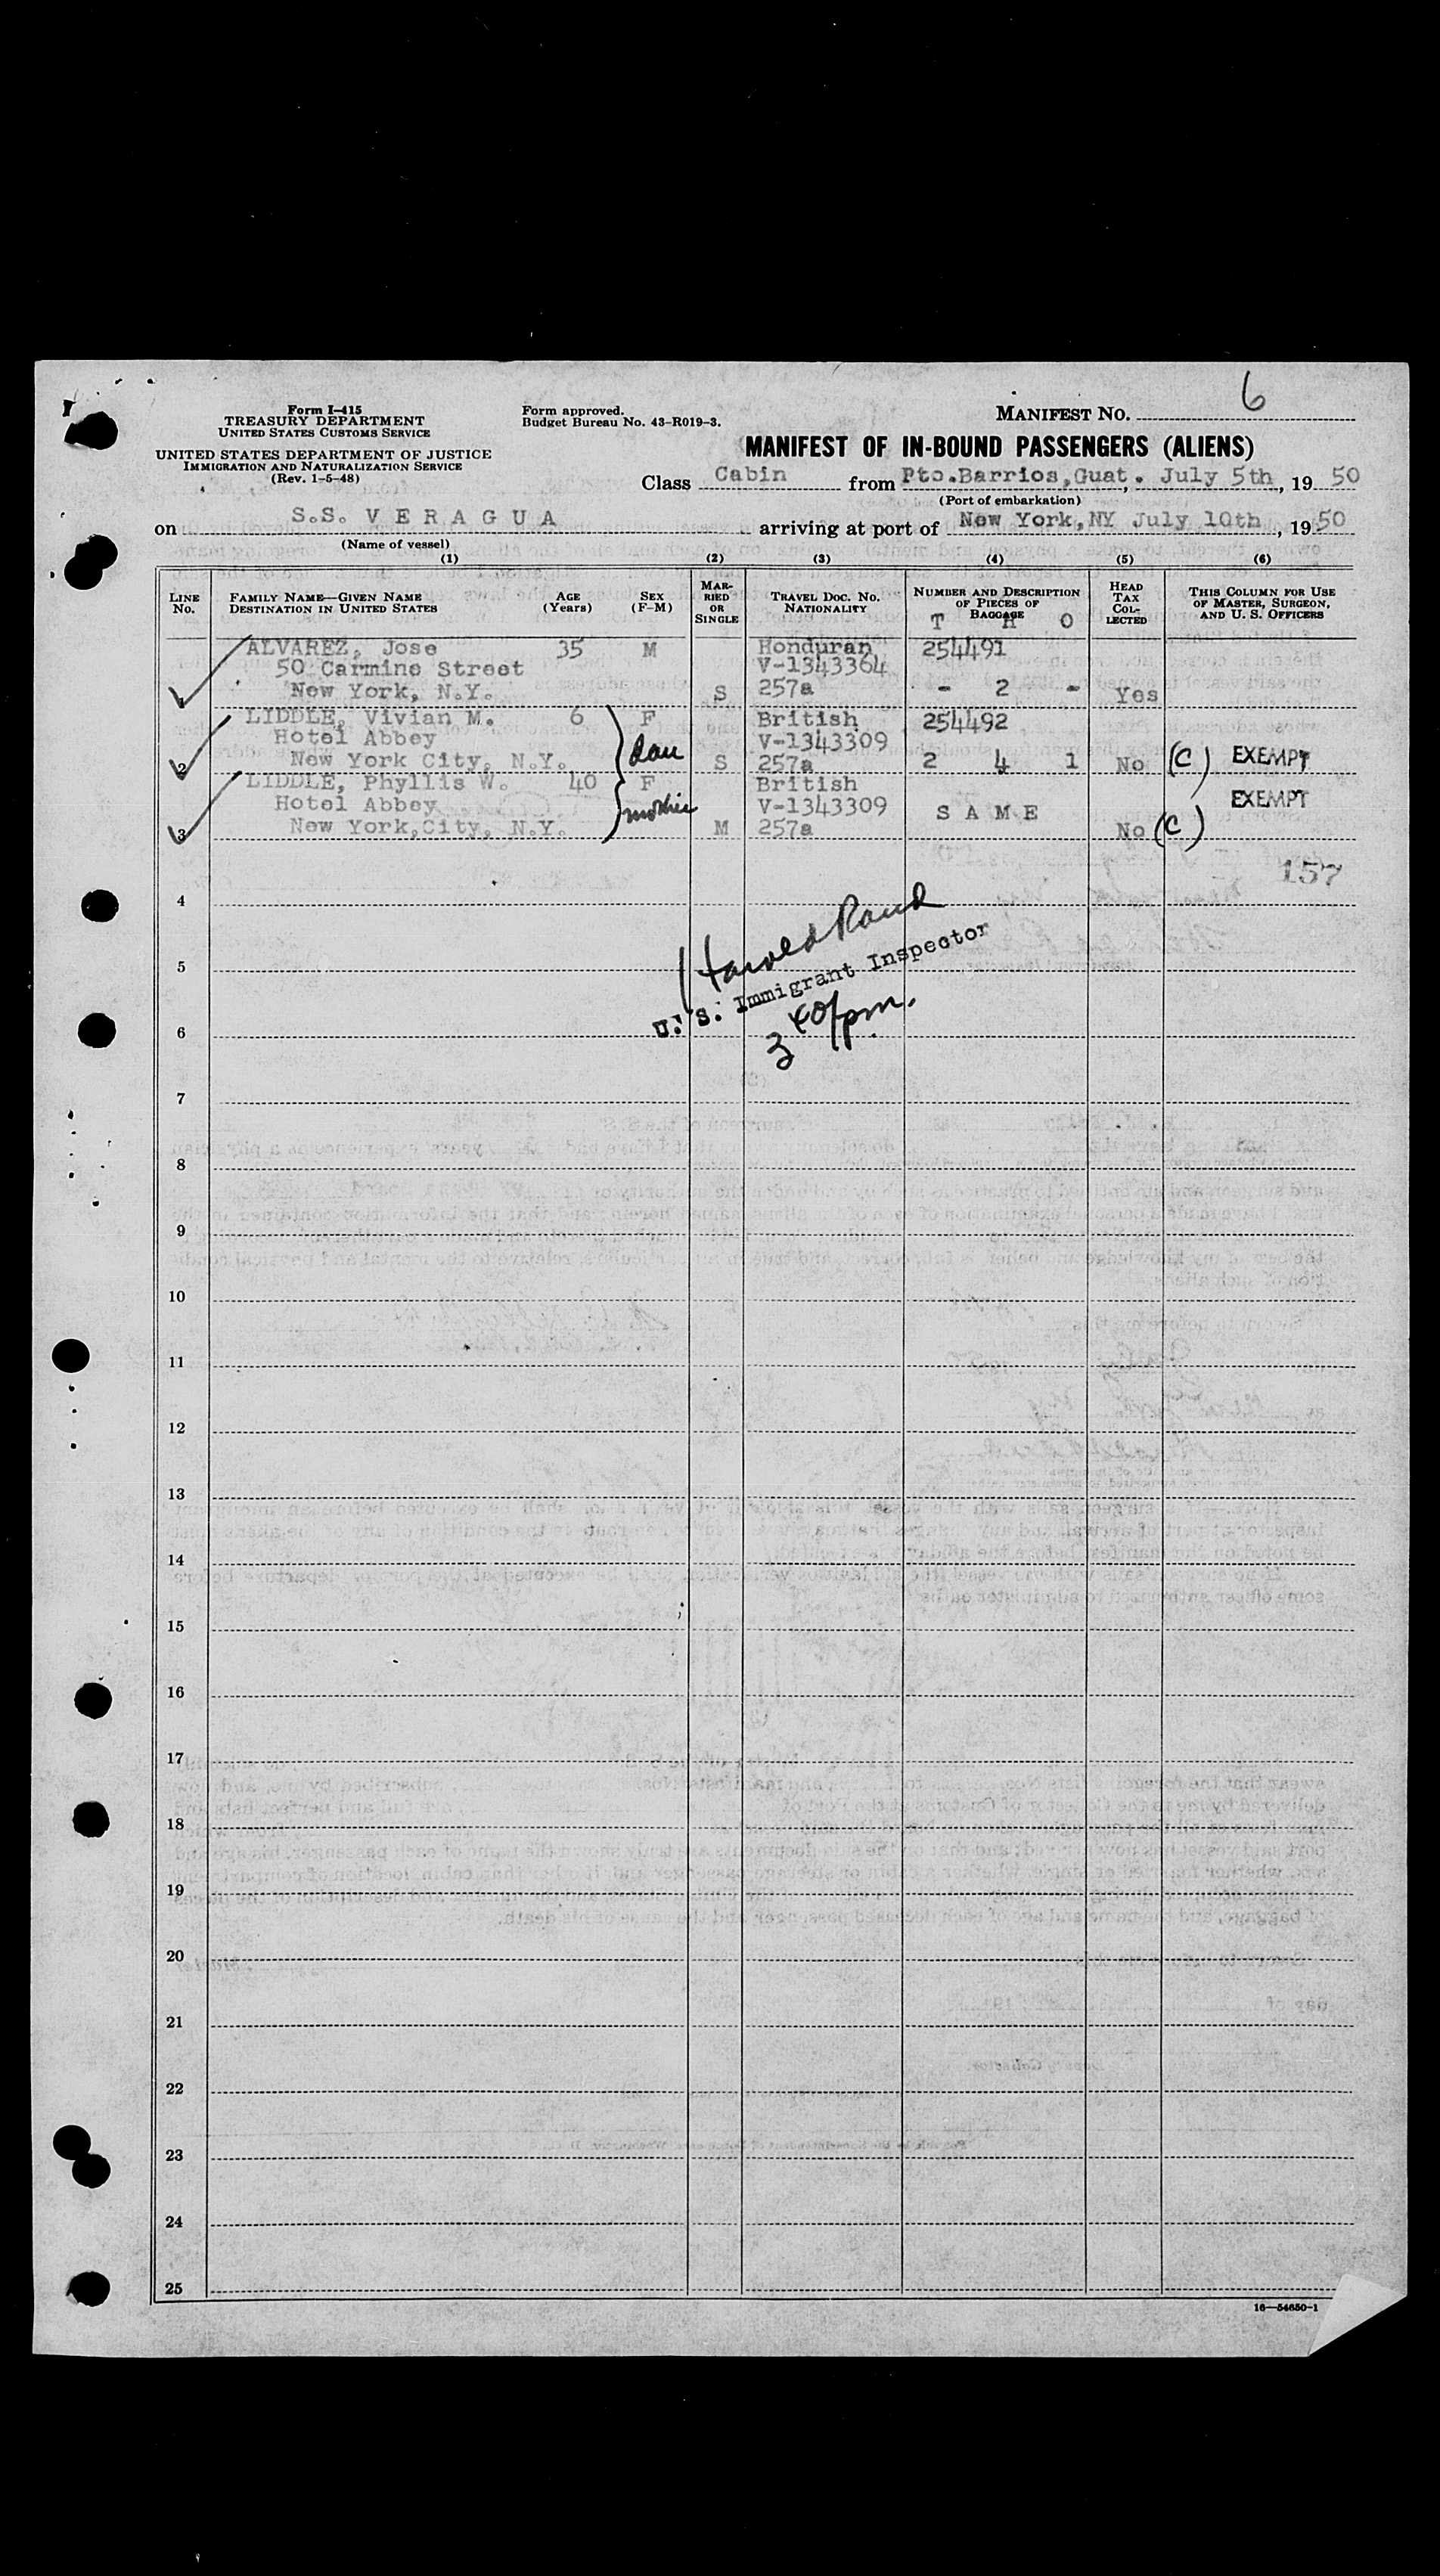 6
Form I-415
TREASURY DEPARTMENT
UNITED STATES CUSTOMS SERVICE
Form approved.
Budget Bureau No. 43-R019-3.
MANIFEST NO.
UNITED STATES DEPARTMENT OF JUSTICE
IMMIGRATION AND NATURALIZATION SERVICE
(Rev. 1-5-48)
MANIFEST OF IN-BOUND PASSENGERS (ALIENS)
Class Cabin from Pto.Barrios,Guat. July 5th, 19 50
(Port of embarkation)
on S.S. VERAGUA arriving at port of New York,NY July 10th, 19 50
(Name of vessel)
(1) (2) (3) (4) (5) (6)
LINE No. FAMILY NAME—GIVEN NAME DESTINATION IN UNITED STATES AGE (Years) SEX (F-M) MARRIED OR SINGLE TRAVEL DOC. NO. NATIONALITY NUMBER AND DESCRIPTION OF PIECES OF BAGGAGE HEAD TAX COLLECTED THIS COLUMN FOR USE OF MASTER, SURGEON, AND U. S. OFFICERS
T H O
ALVAREZ, Jose 35 M Honduran 254491
50 Carmine Street V-1343364
1 New York, N.Y. S 257a - 2 - Yes
LIDDLE, Vivian M. 6 F British 254492
Hotel Abbey dau V-1343309
2 New York City, N.Y. S 257a 2 4 1 No (C) EXEMPT
LIDDLE, Phyllis W. 40 F British EXEMPT
Hotel Abbey mother V-1343309 SAME
3 New York,City, N.Y. M 257a No (C)
157
4
Harold Rand
5
U. S. Immigrant Inspector
6
3 40/pm.
7
8
9
10
11
12
13
14
15
16
17
18
19
20
21
22
23
24
25
16—54650-1